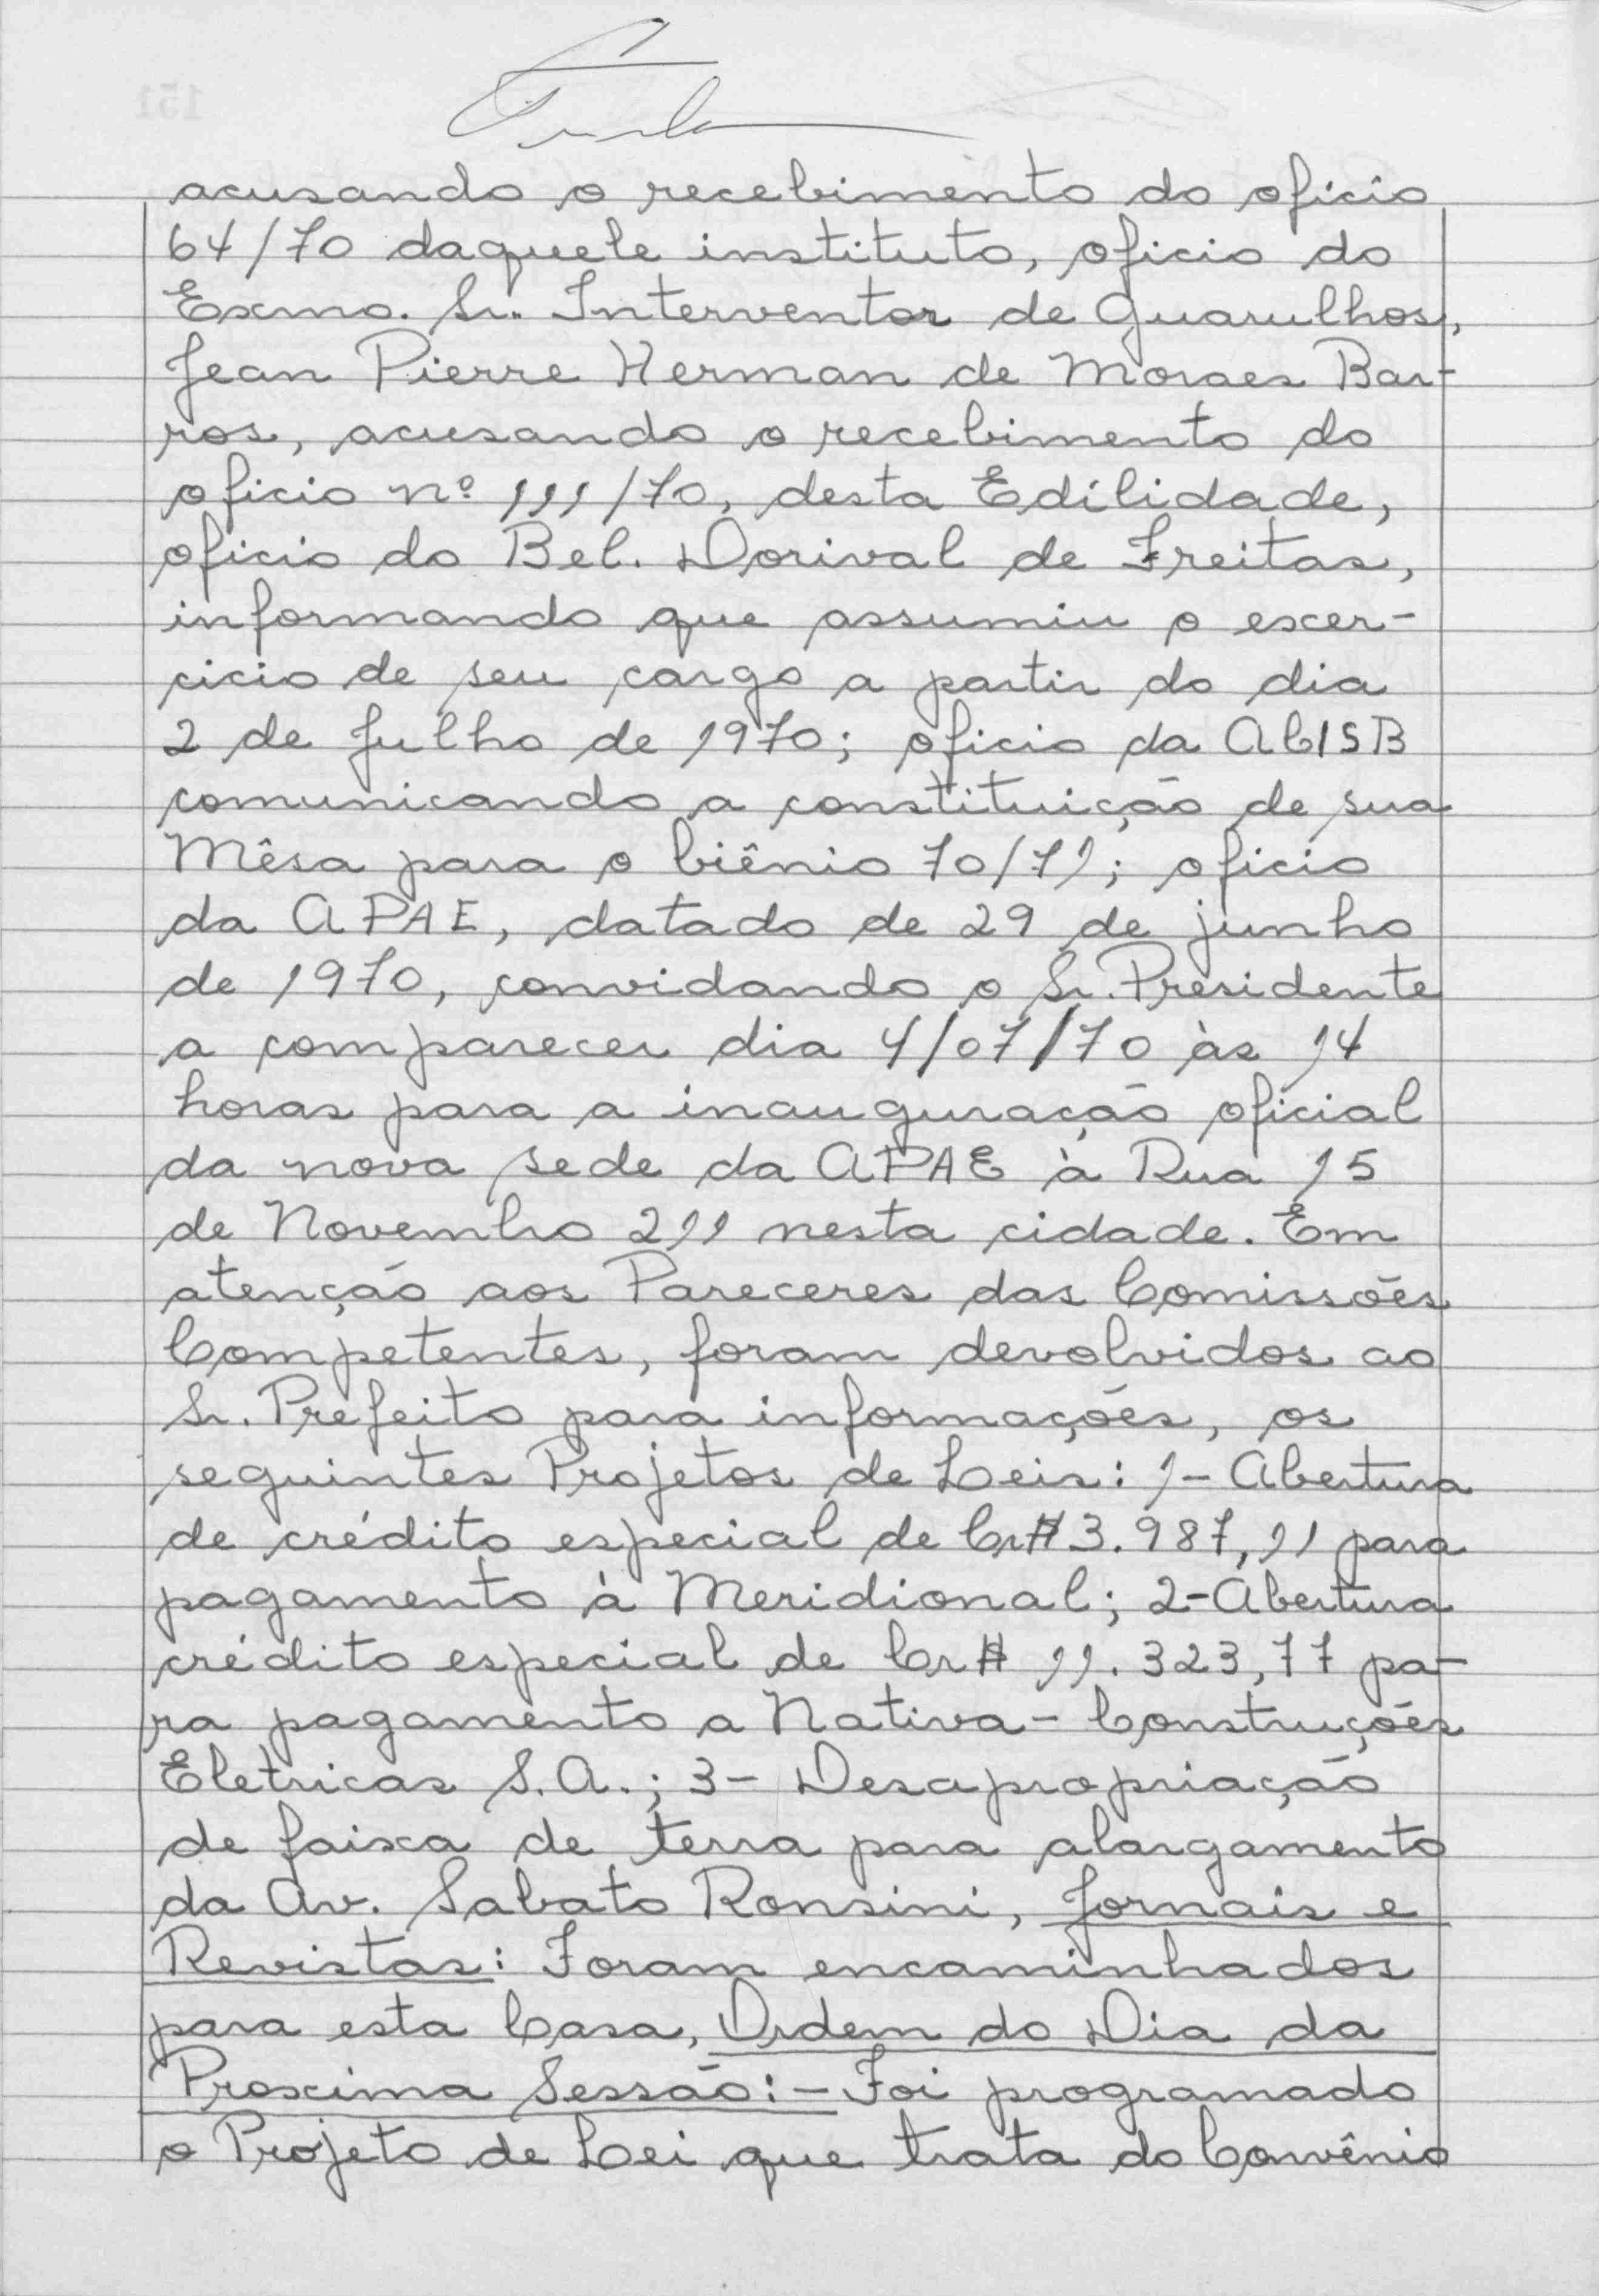 acusando o recebimento do oficio
64/70 daquele instituto, oficio do
Exmo. Sr. Interventor de Guarulhos,
Jean Pierre Herman de Moraes Bar-
ros, acusando o recebimento do
oficio nº 111/70, desta Edilidade,
oficio do Bel. Dorival de Freitas,
informando que assumiu o exer-
cicio de seu cargo a partir do dia
2 de Julho de 1970; oficio da ACISB
comunicando a constituição de sua
Mêsa para o biênio 70/71; oficio
da APAE, datado de 29 de junho
de 1970, convidando o Sr. Presidente
a comparecer dia 4/07/70 às 14
horas para a inauguração oficial
da nova sede da APAE à Rua 15
de Novembro 211 nesta cidade. Em
atenção aos Pareceres das Comissões
Competentes, foram devolvidos ao
Sr. Prefeito para informações, os
seguintes Projetos de Leis: 1- Abertura
de crédito especial de Cr$ 3.987,11 para
pagamento à Meridional; 2- Abertura
crédito especial de Cr$ 11.323,77 pa-
ra pagamento a Nativa - Construções
Eletricas S.A.; 3- Desapropriação
de faixa de terra para alargamento
da Av. Sabato Ronsini, Jornais e
Revistas: Foram encaminhados
para esta Casa, Ordem do Dia da
Proxima Sessão: - Foi programado
o Projeto de Lei que trata do Convênio